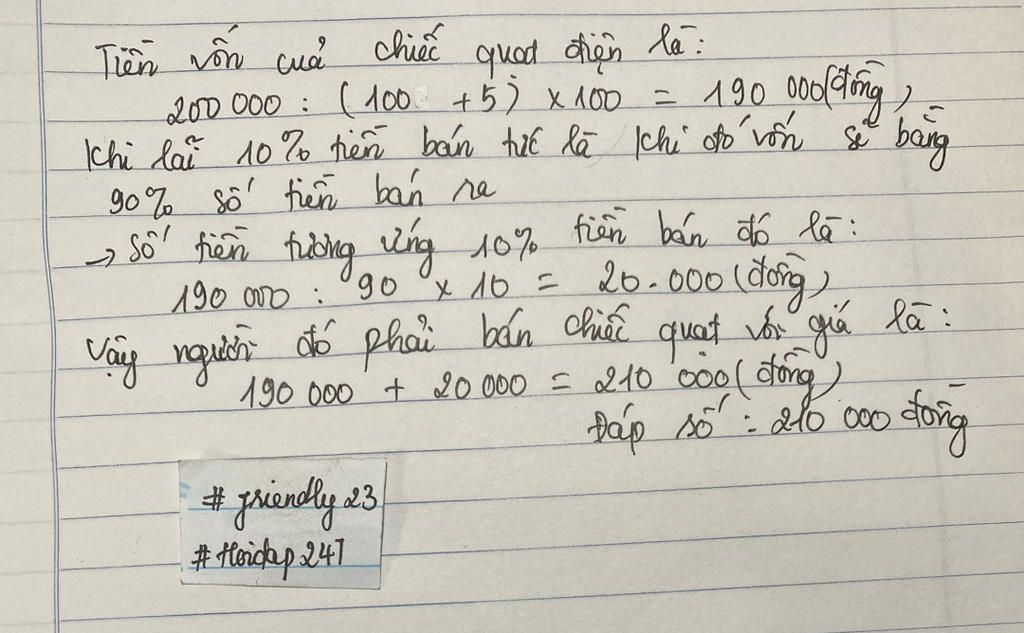 Tiền vốn của chiếc quạt điện là:
200 000 : (100 + 5) x 100 = 190 000 (đồng)
Khi lãi 10% tiền bán tức là khi đó vốn sẽ bằng
90% số tiền bán ra
→ số tiền tương ứng 10% tiền bán đó là:
190 000 : 90 x 10 = 20.000 (đồng)
Vậy người đó phải bán chiếc quạt với giá là:
190 000 + 20 000 = 210 000 (đồng)
Đáp số : 210 000 đồng
# friendly 23
# Hoidap 247